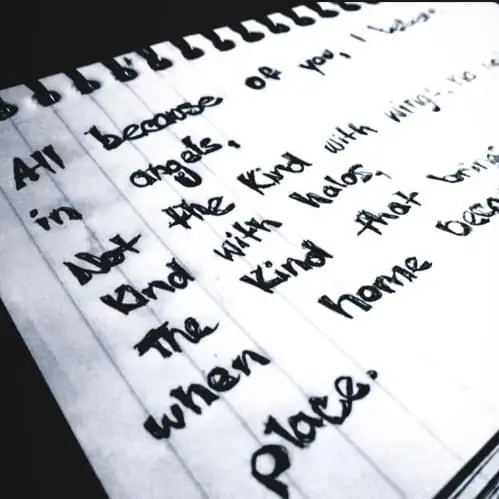 All because of you, I
in angels,
Not the Kind with wings. No
Kind with halos,
The Kind that bring
when home
place.